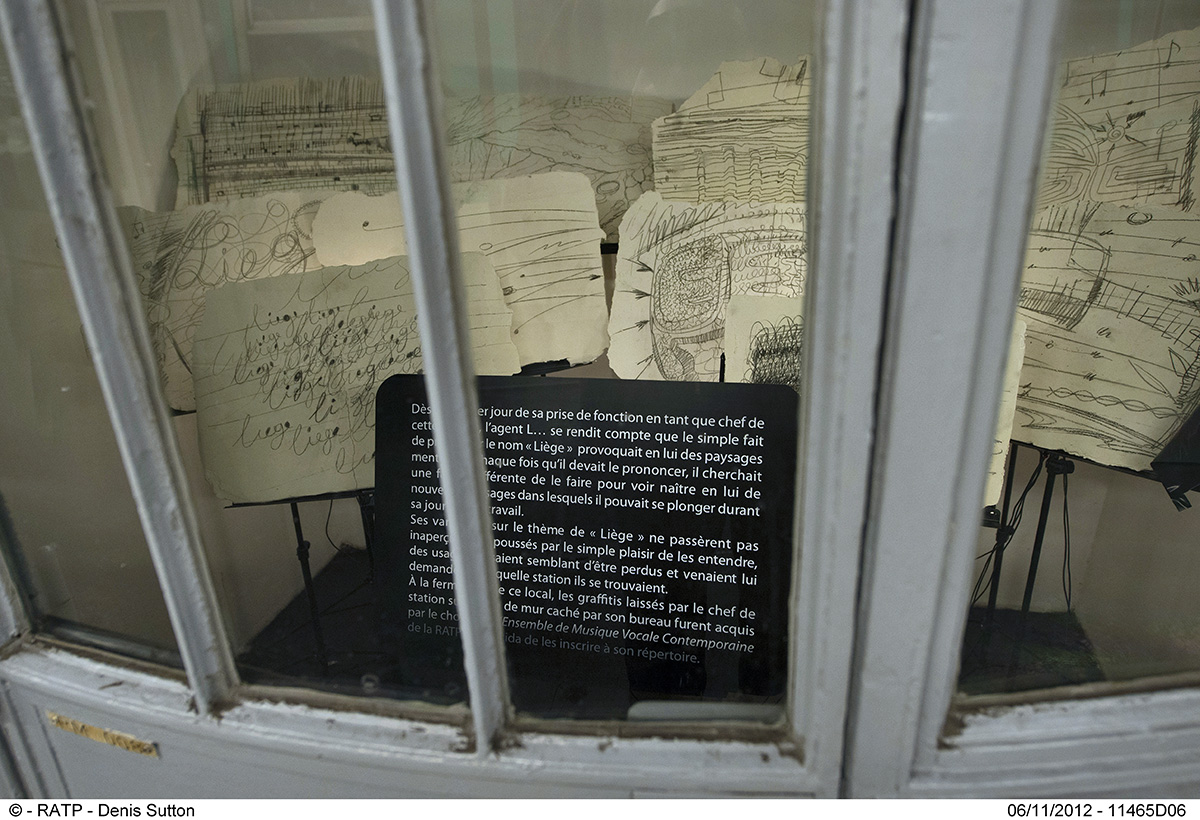 Lieg
liège liège
Dès er jour de sa prise de fonction en tant que chef de
cette l'agent L… se rendit compte que le simple fait
de p le nom « Liège » provoquait en lui des paysages
ment haque fois qu'il devait le prononcer, il cherchait
une f férente de le faire pour voir naître en lui de
nouve sages dans lesquels il pouvait se plonger durant
sa jour ravail.
Ses var sur le thème de « Liège » ne passèrent pas
inaperç poussés par le simple plaisir de les entendre,
des usa aient semblant d'être perdus et venaient lui
demand quelle station ils se trouvaient.
À la ferm e ce local, les graffitis laissés par le chef de
station su de mur caché par son bureau furent acquis
par le cho Ensemble de Musique Vocale Contemporaine
de la RATP ida de les inscrire à son répertoire.
© - RATP - Denis Sutton
06/11/2012 - 11465D06